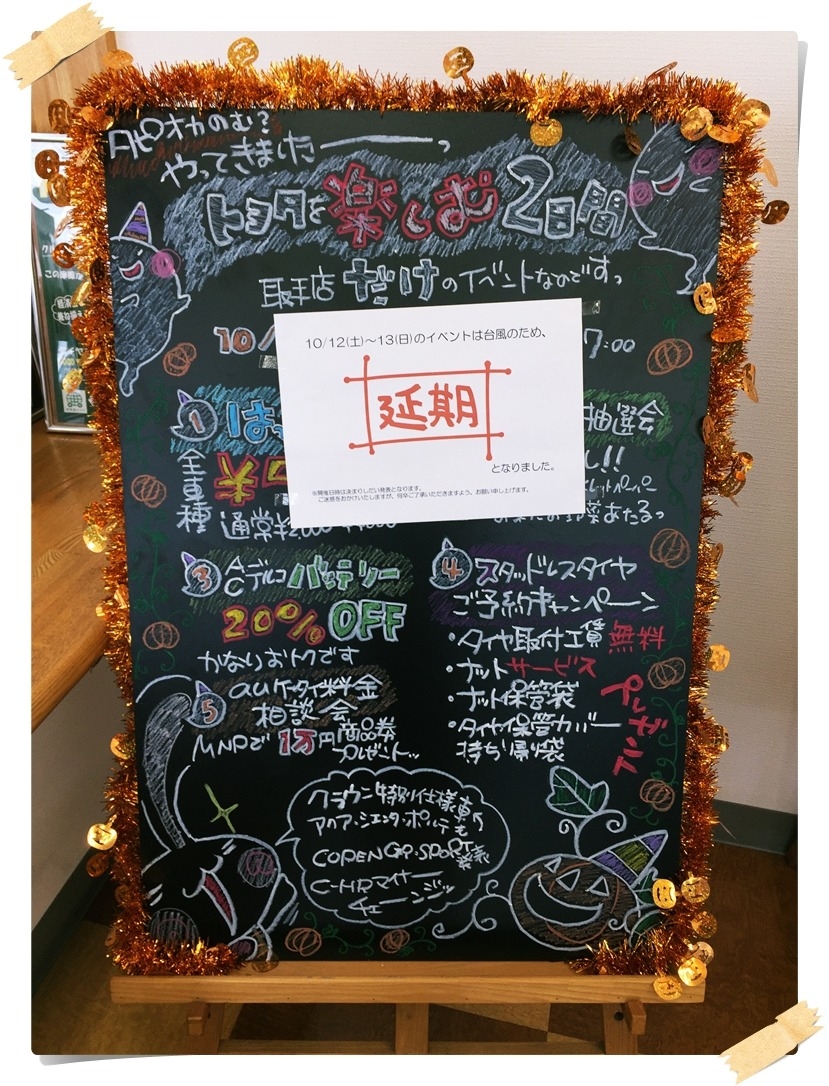 タピオカのむ?
やってきましたーっ
トヨタを楽しむ2日間
取手店だけのイベントなのですっ
10/
7:00
10/12(土)~13(日)のイベントは台風のため、
延期
となりました。
※開催日時は決まりしだい発表となります。
ご迷惑をおかけいたしますが、何卒ご了承いただきますよう、お願い申し上げます。
1
抽選会
全車種
し!!
通常¥2000
お菓子 野菜あたるっ
3 ACデルコバッテリー
20%OFF
かなりおトクです
4 スタッドレスタイヤ
ご予約キャンペーン
・タイヤ取付工賃無料
・ナットサービス
・ナット保管袋
・タイヤ保管カバー
持ち帰り袋
プレゼント
5 auケータイ料金
相談会
MNPで1万円商品券
プレゼント
クラウン特別仕様車や
アクア・シエンタ・ポルテも
COPEN GR・SPORT
発表
C-HRマイナー
チェーンジッ